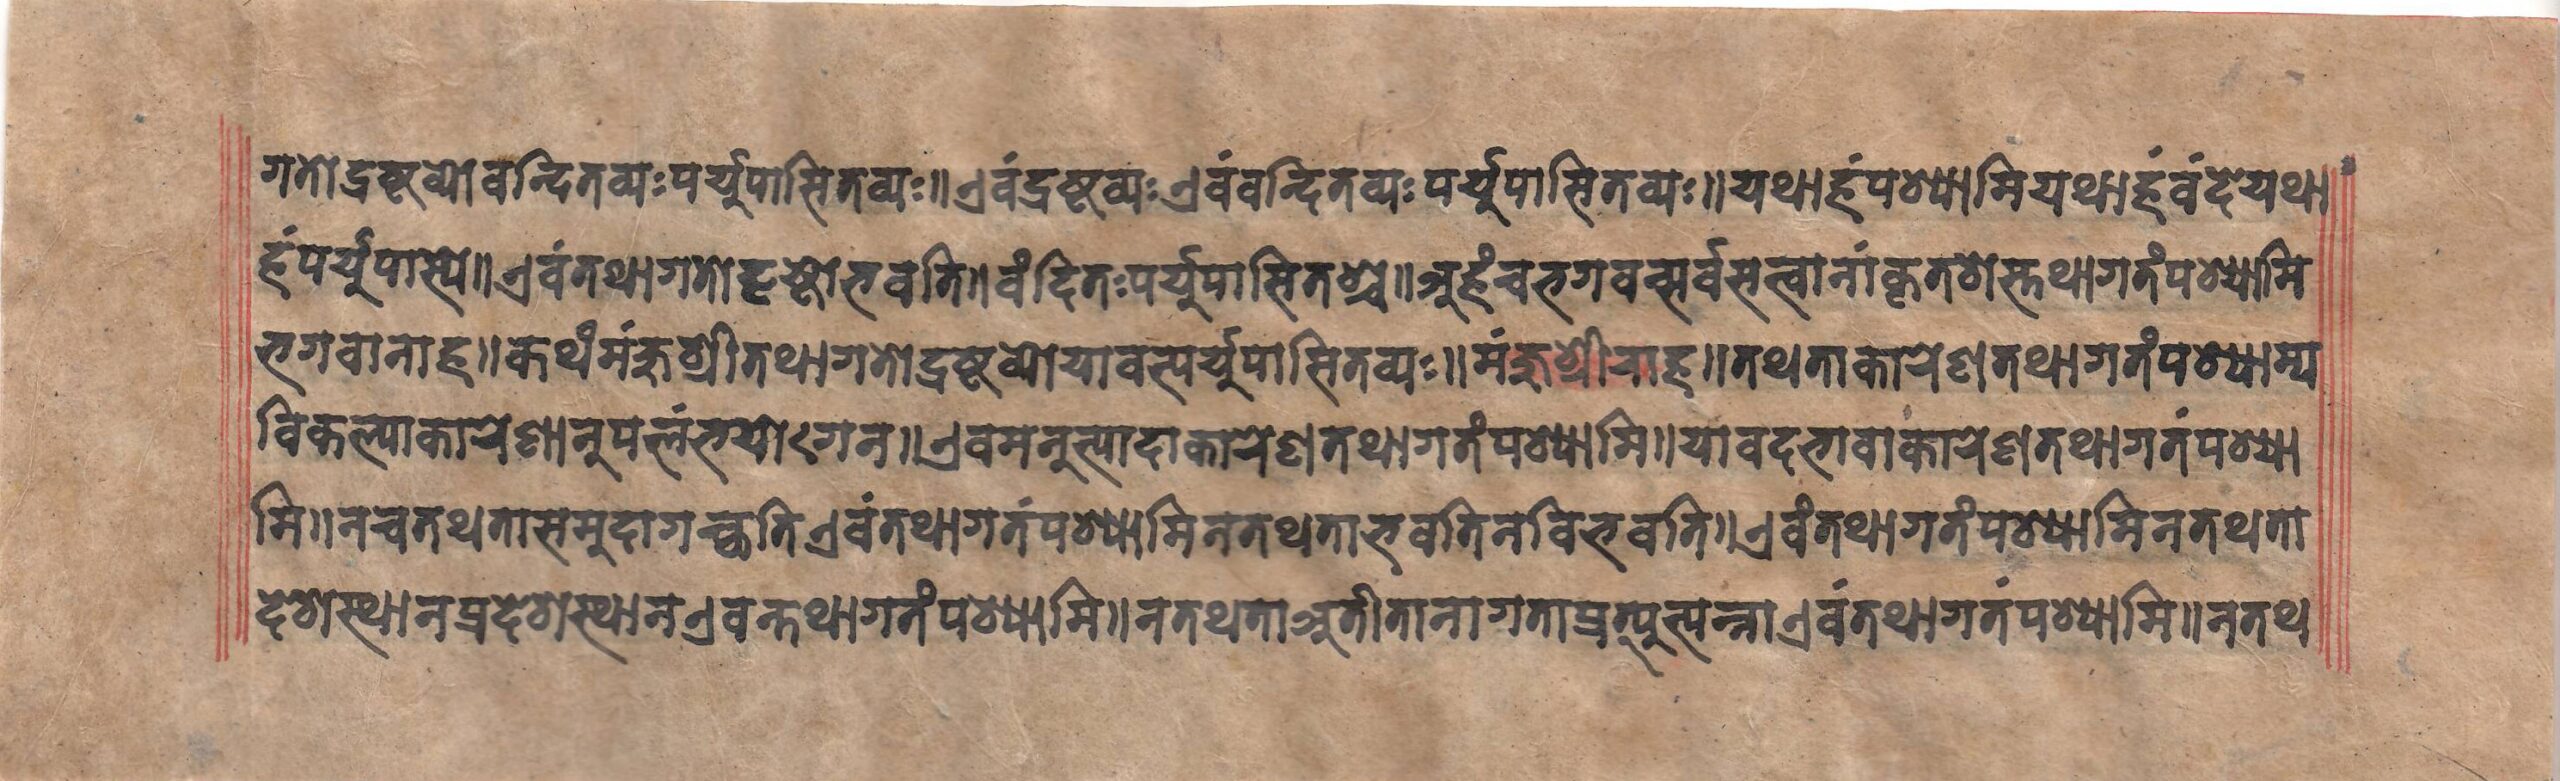 गतोद्रष्टव्योवन्दितव्यःपर्युपासितव्यः॥एवंद्रष्टव्यःएवंवन्दितव्यःपर्युपासितव्यः॥यथाहंपश्यामियथाहंवंदेयथा
हंपर्युपास्ये॥एवंतथागतोदृष्टोभवति॥वंदितःपर्युपासितश्च॥अहंचभगवन्सर्वसत्वानांकृतशेस्तथागतंपश्यामि
भगवानाह॥कथंमंजुश्रीतथागतोद्रष्टव्योयावत्पर्युपासितव्यः॥मंजुश्रीराह॥तथताकारेणतथागतंपश्याम्य
विकल्पाकारेणानुपलंभयोगेन॥एवमनुत्पादाकारेणतथागतंपश्यामि॥यावदभावाकारेणतथागतंपश्या
मि॥नचतथतासमुदागच्छतिएवंतथागतंपश्यामिनतथताभवतिनविभवति॥एवंतथागतंपश्यामिनतथता
देशेस्थानप्रदेशेस्थानएवन्तथागतंपश्यामि॥नतथताअतीतानागताप्रत्युत्पन्नाएवंतथागतंपश्यामि॥नतथ